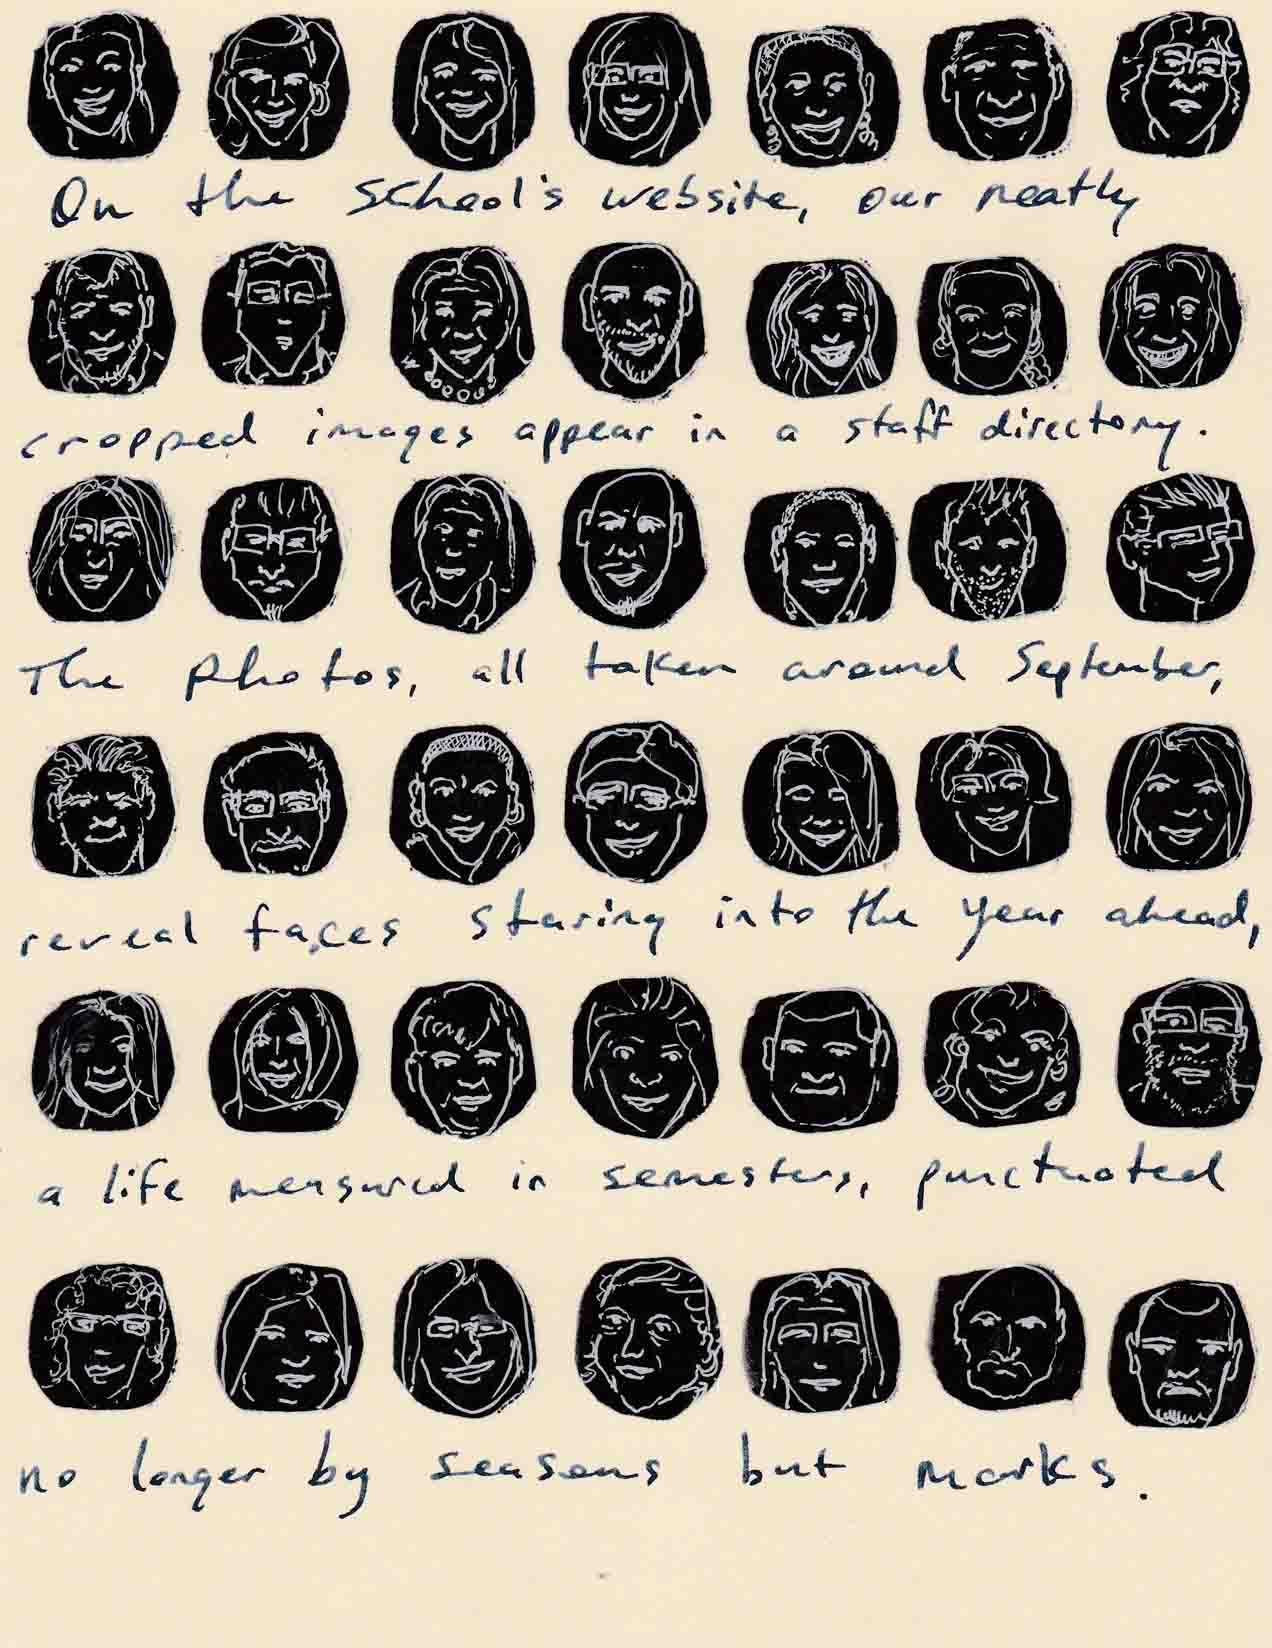 On the School's website, our neatly
cropped images appear in a staff directory.
The photos, all taken around September,
reveal faces staring into the year ahead,
a life measured in semesters, punctuated
no longer by seasons but marks.